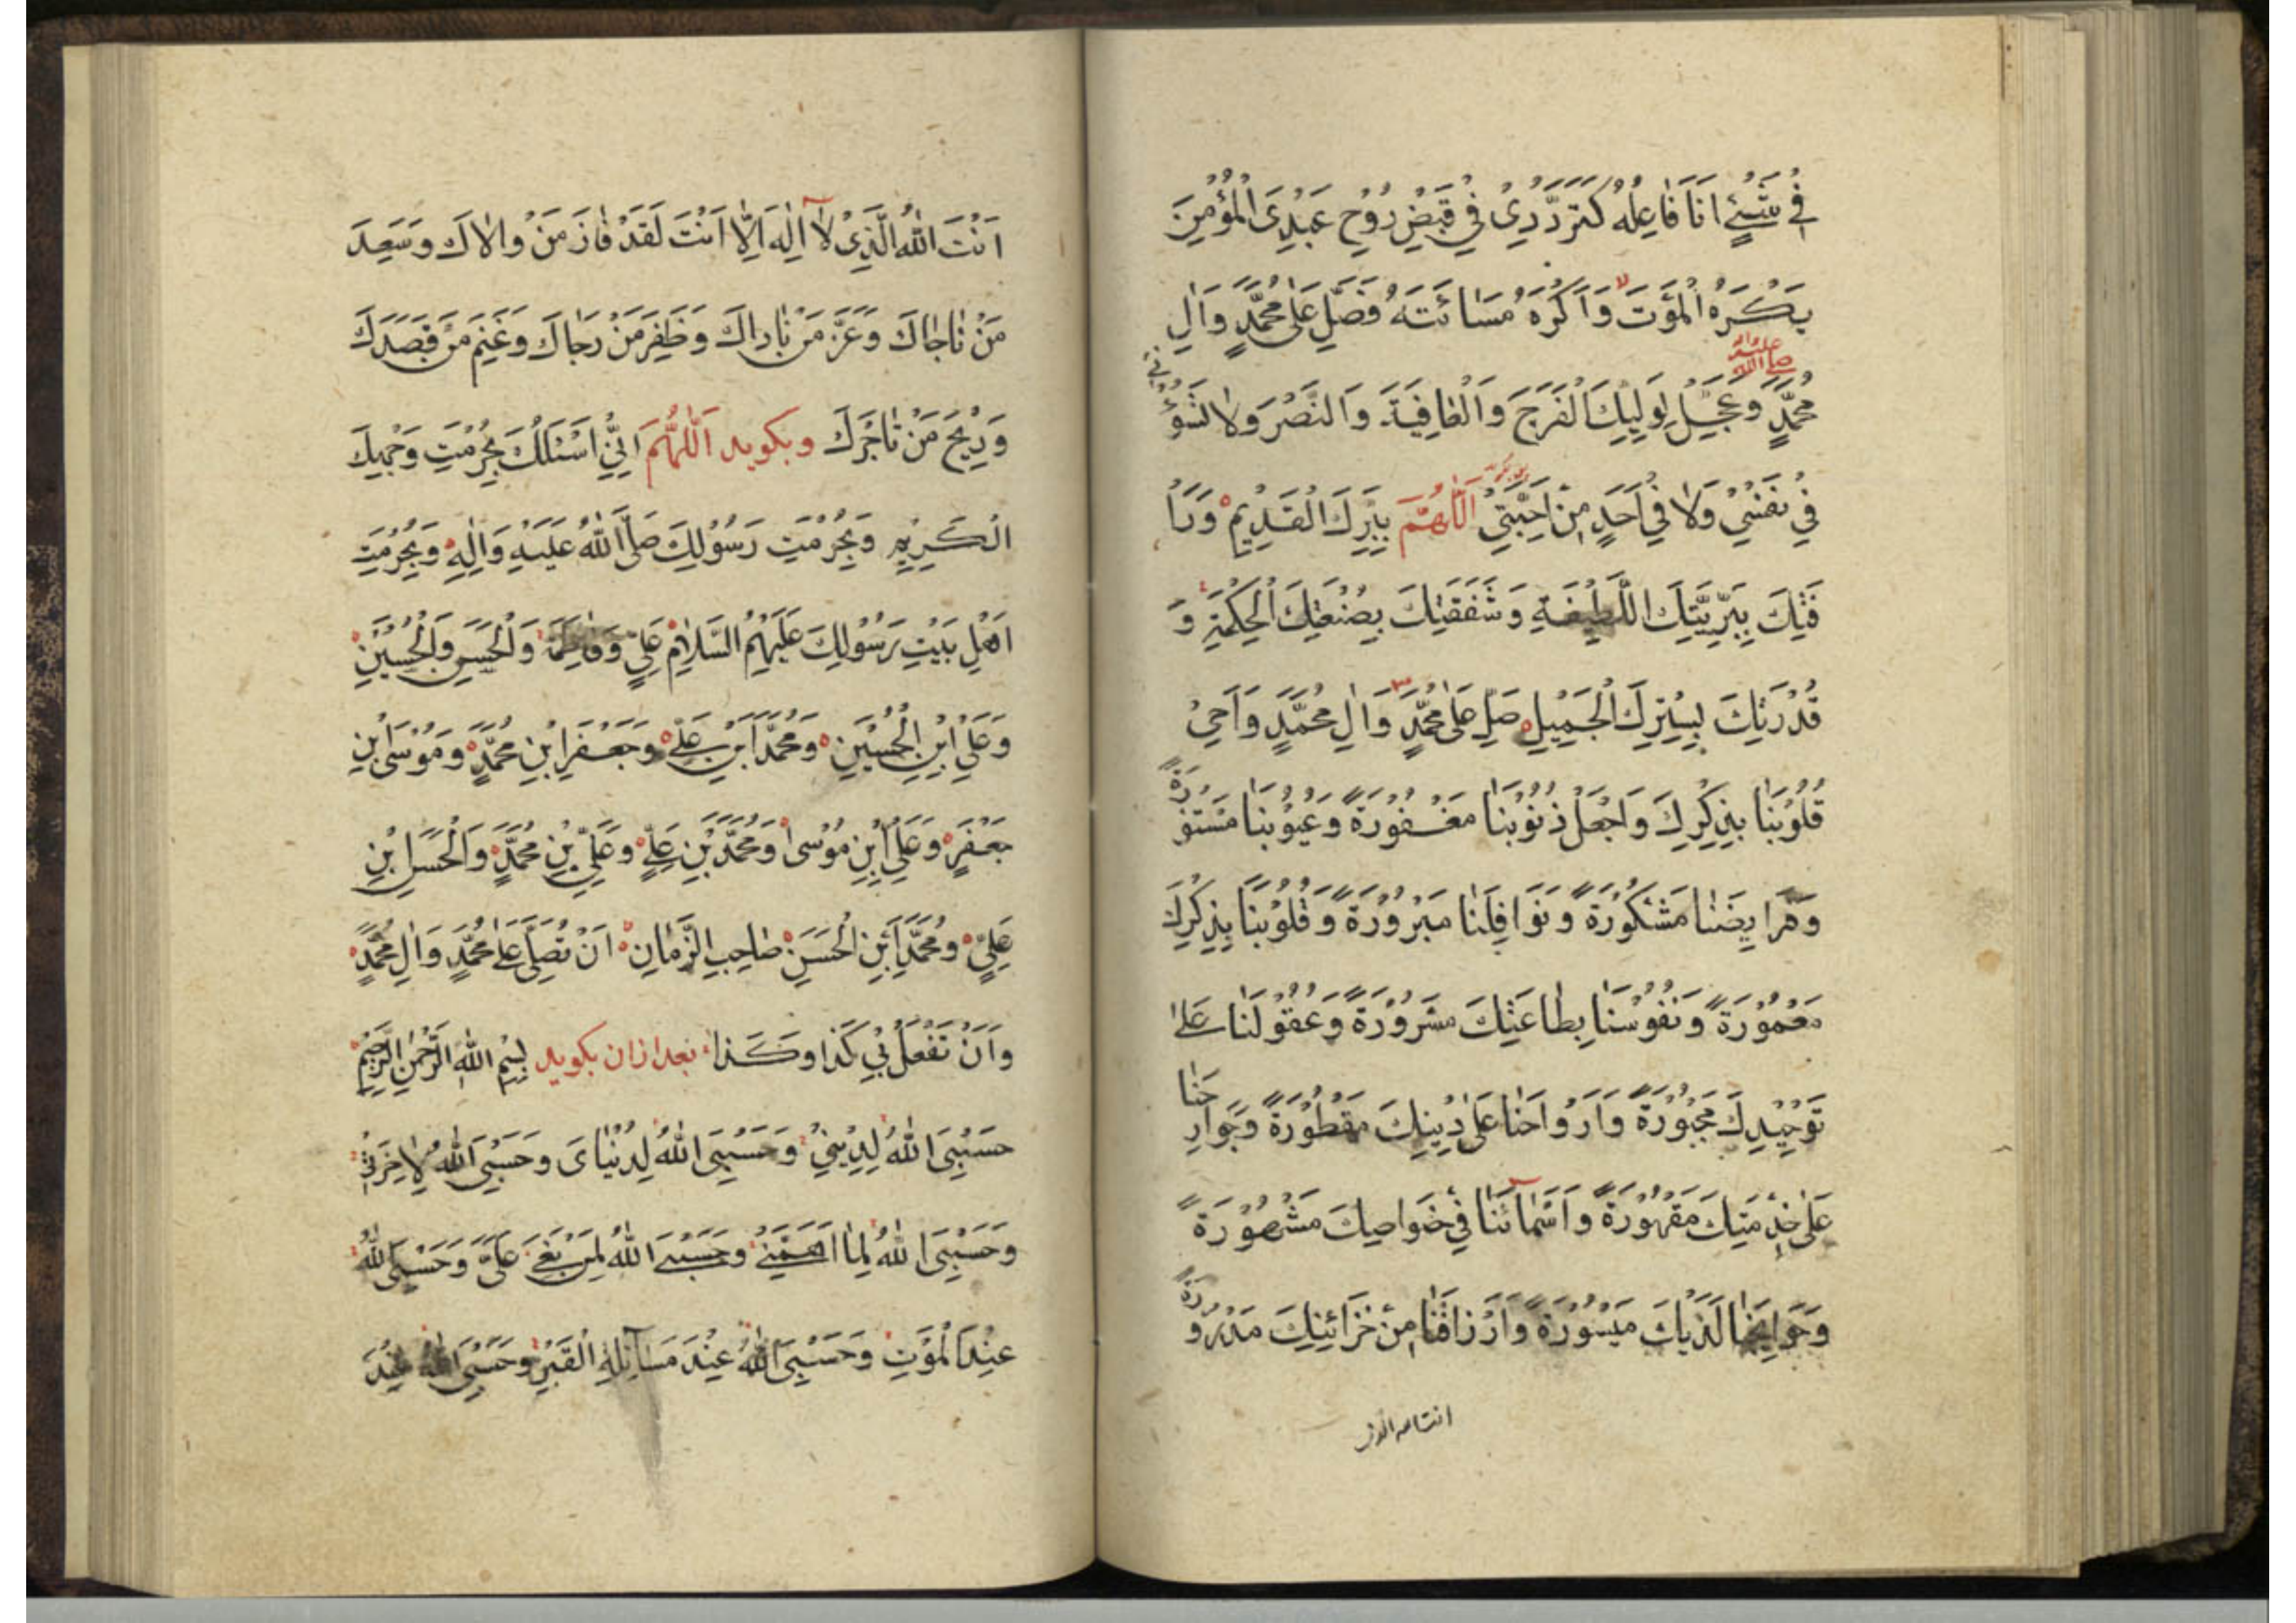 فِي شَيْئٍ اَنَا فَاعِلُهُ كَتَرَدُّدِي فِي قَبْضِ رُوْحِ عَبْدِيَ الْمُؤْمِنِ
يَكْرَهُ الْمَوْتَ وَاَكْرَهُ مَسَائَتَهُ فَصَلِّ عَلٰى مُحَمَّدٍ وَاٰلِ
مُحَمَّدٍ وَعَجِّلْ لِوَلِيِّكَ الْفَرَجَ وَالْعَافِيَةَ وَالنَّصْرَ وَلَا تَسُؤْنِي
فِي نَفْسِي وَلَا فِي اَحَدٍ مِنْ اَحِبَّتِي اَللّٰهُمَّ بِبِرِّكَ الْقَدِيمِ وَرَأْ
فَتِكَ بِبَرِيَّتِكَ اللَّطِيفَةِ وَشَفَقَتِكَ بِصُنْعَتِكَ الْحِكْمَةِ وَ
قُدْرَتِكَ بِسِتْرِكَ الْجَمِيلِ صَلِّ عَلٰى مُحَمَّدٍ وَاٰلِ مُحَمَّدٍ وَاَحْيِ
قُلُوْبَنَا بِذِكْرِكَ وَاجْعَلْ ذُنُوْبَنَا مَغْفُورَةً وَعُيُوْبَنَا مَسْتُوْرَةً
وَفَرَايِضَنَا مَشْكُوْرَةً وَنَوَافِلَنَا مَبْرُوْرَةً وَقُلُوْبَنَا بِذِكْرِكَ
مَعْمُوْرَةً وَنُفُوْسَنَا بِطَاعَتِكَ مَسْرُوْرَةً وَعُقُوْلَنَا عَلٰى
تَوْحِيْدِكَ مَجْبُوْرَةً وَاَرْوَاحَنَا عَلٰى دِيْنِكَ مَفْطُوْرَةً وَجَوَارِحَنَا
عَلٰى خِدْمَتِكَ مَقْهُوْرَةً وَاَسْمَآئَنَا فِي خَوَاصِّكَ مَشْهُوْرَةً
وَحَوَايِجَنَا لَدَيْكَ مَيْسُوْرَةً وَاَرْزَاقَنَا مِنْ خَزَائِنِكَ مَدْرُوْرَةً
انت الله الذى
اَنْتَ اللّٰهُ الَّذِي لَآ اِلٰهَ اِلَّا اَنْتَ لَقَدْ فَازَ مَنْ وَالَاكَ وَسَعِدَ
مَنْ نَاجَاكَ وَعَزَّ مَنْ نَادَاكَ وَظَفِرَ مَنْ رَجَاكَ وَغَنِمَ مَنْ قَصَدَكَ
وَرَبِحَ مَنْ تَاجَرَكَ وبكويد اَللّٰهُمَّ اِنِّي اَسْئَلُكَ بِحُرْمَتِ وَجْهِكَ
الْكَرِيْمِ وَبِحُرْمَتِ رَسُوْلِكَ صَلَّى اللّٰهُ عَلَيْهِ وَاٰلِهِ وَبِحُرْمَتِ
اَهْلِ بَيْتِ رَسُوْلِكَ عَلَيْهِمُ السَّلَامُ عَلِيٍّ وَفَاطِمَةَ وَالْحَسَنِ وَالْحُسَيْنِ
وَعَلِيِّ ابْنِ الْحُسَيْنِ وَمُحَمَّدِ ابْنِ عَلِيٍّ وَجَعْفَرِ ابْنِ مُحَمَّدٍ وَمُوْسَى ابْنِ
جَعْفَرٍ وَعَلِيِّ ابْنِ مُوْسٰى وَمُحَمَّدِ بْنِ عَلِيٍّ وَعَلِيِّ بْنِ مُحَمَّدٍ وَالْحَسَنِ ابْنِ
عَلِيٍّ وَمُحَمَّدِ ابْنِ الْحَسَنِ صَاحِبِ الزَّمَانِ اَنْ تُصَلِّيَ عَلٰى مُحَمَّدٍ وَاٰلِ مُحَمَّدٍ
وَاَنْ تَفْعَلَ بِي كَذَا وَكَذَا بعد ازان بكويد بِسْمِ اللّٰهِ الرَّحْمٰنِ الرَّحِيْمِ
حَسْبِيَ اللّٰهُ لِدِيْنِي وَحَسْبِيَ اللّٰهُ لِدُنْيَايَ وَحَسْبِيَ اللّٰهُ لِاٰخِرَتِي
وَحَسْبِيَ اللّٰهُ لِمَا اَهَمَّنِي وَحَسْبِيَ اللّٰهُ لِمَنْ بَغٰى عَلَيَّ وَحَسْبِيَ اللّٰهُ
عِنْدَ الْمَوْتِ وَحَسْبِيَ اللّٰهُ عِنْدَ مَسَآئِلَةِ الْقَبْرِ وَحَسْبِيَ اللّٰهُ عِنْدَ